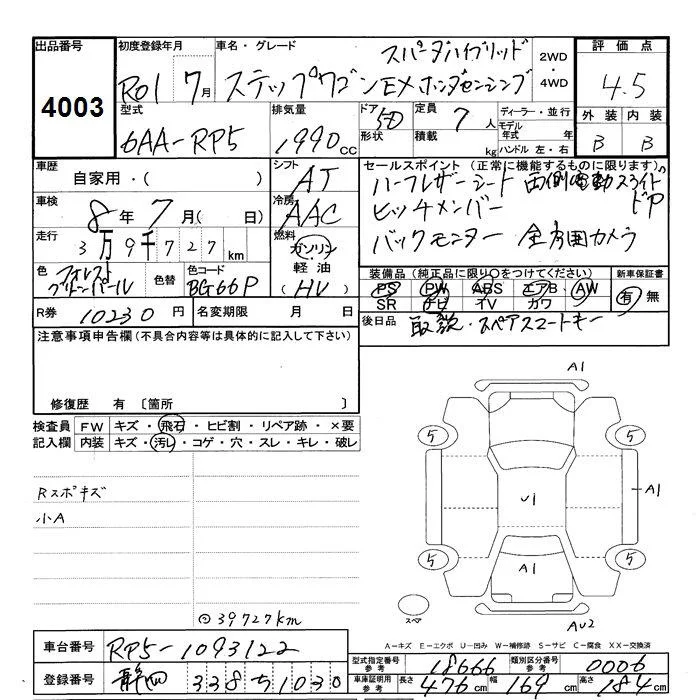 出品番号
4003
初度登録年月
R01 7月
車名・グレード
スパーダハイブリッド
ステップワゴンEXホンダセンシング
2WD
・
4WD
評価点
4.5
外装 内装
B B
型式
6AA-RP5
排気量
1990cc
ドア 5D
形状
定員 7人
積載 kg
ディーラー・並行
モデル年式 年
ハンドル 左・右
車歴
自家用・( )
車検
8年7月( 日)
走行
3万9千727km
シフト
AT
冷房
AAC
燃料
ガソリン
軽油
(HV)
色
フォレスト
グリーンパール
色替
色コード
BG66P
R券 10230円
名変期限 月 日
セールスポイント(正常に機能するものに限ります)
ハーフレザーシート 両側電動スライドドア
ヒッチメンバー
バックモニター 全方囲カメラ
装備品(純正品に限り○をつけてください)
PS PW ABS エアB AW
SR ナビ TV カワ
新車保証書
有 無
後日品
取説・スペアスマートキー
注意事項申告欄(不具合内容等は具体的に記入して下さい)
修復歴 有〔箇所 〕
検査員記入欄
FW キズ・飛石・ヒビ割・リペア跡・×要
内装 キズ・汚レ・コゲ・穴・スレ・キレ・破レ
Rスポキズ
小A
39727km
A1
5 5
A1
U1
5 5
A1
スペア
AU2
A-キズ E-エクボ U-凹み W-補修跡 S-サビ C-腐食 XX-交換済
車台番号 RP5-1093122
登録番号 静岡 338 ち 1030
型式指定番号 参考 18666
類別区分番号 参考 0006
車庫証明用 参考 長さ 476cm 幅 169cm 高さ 184cm